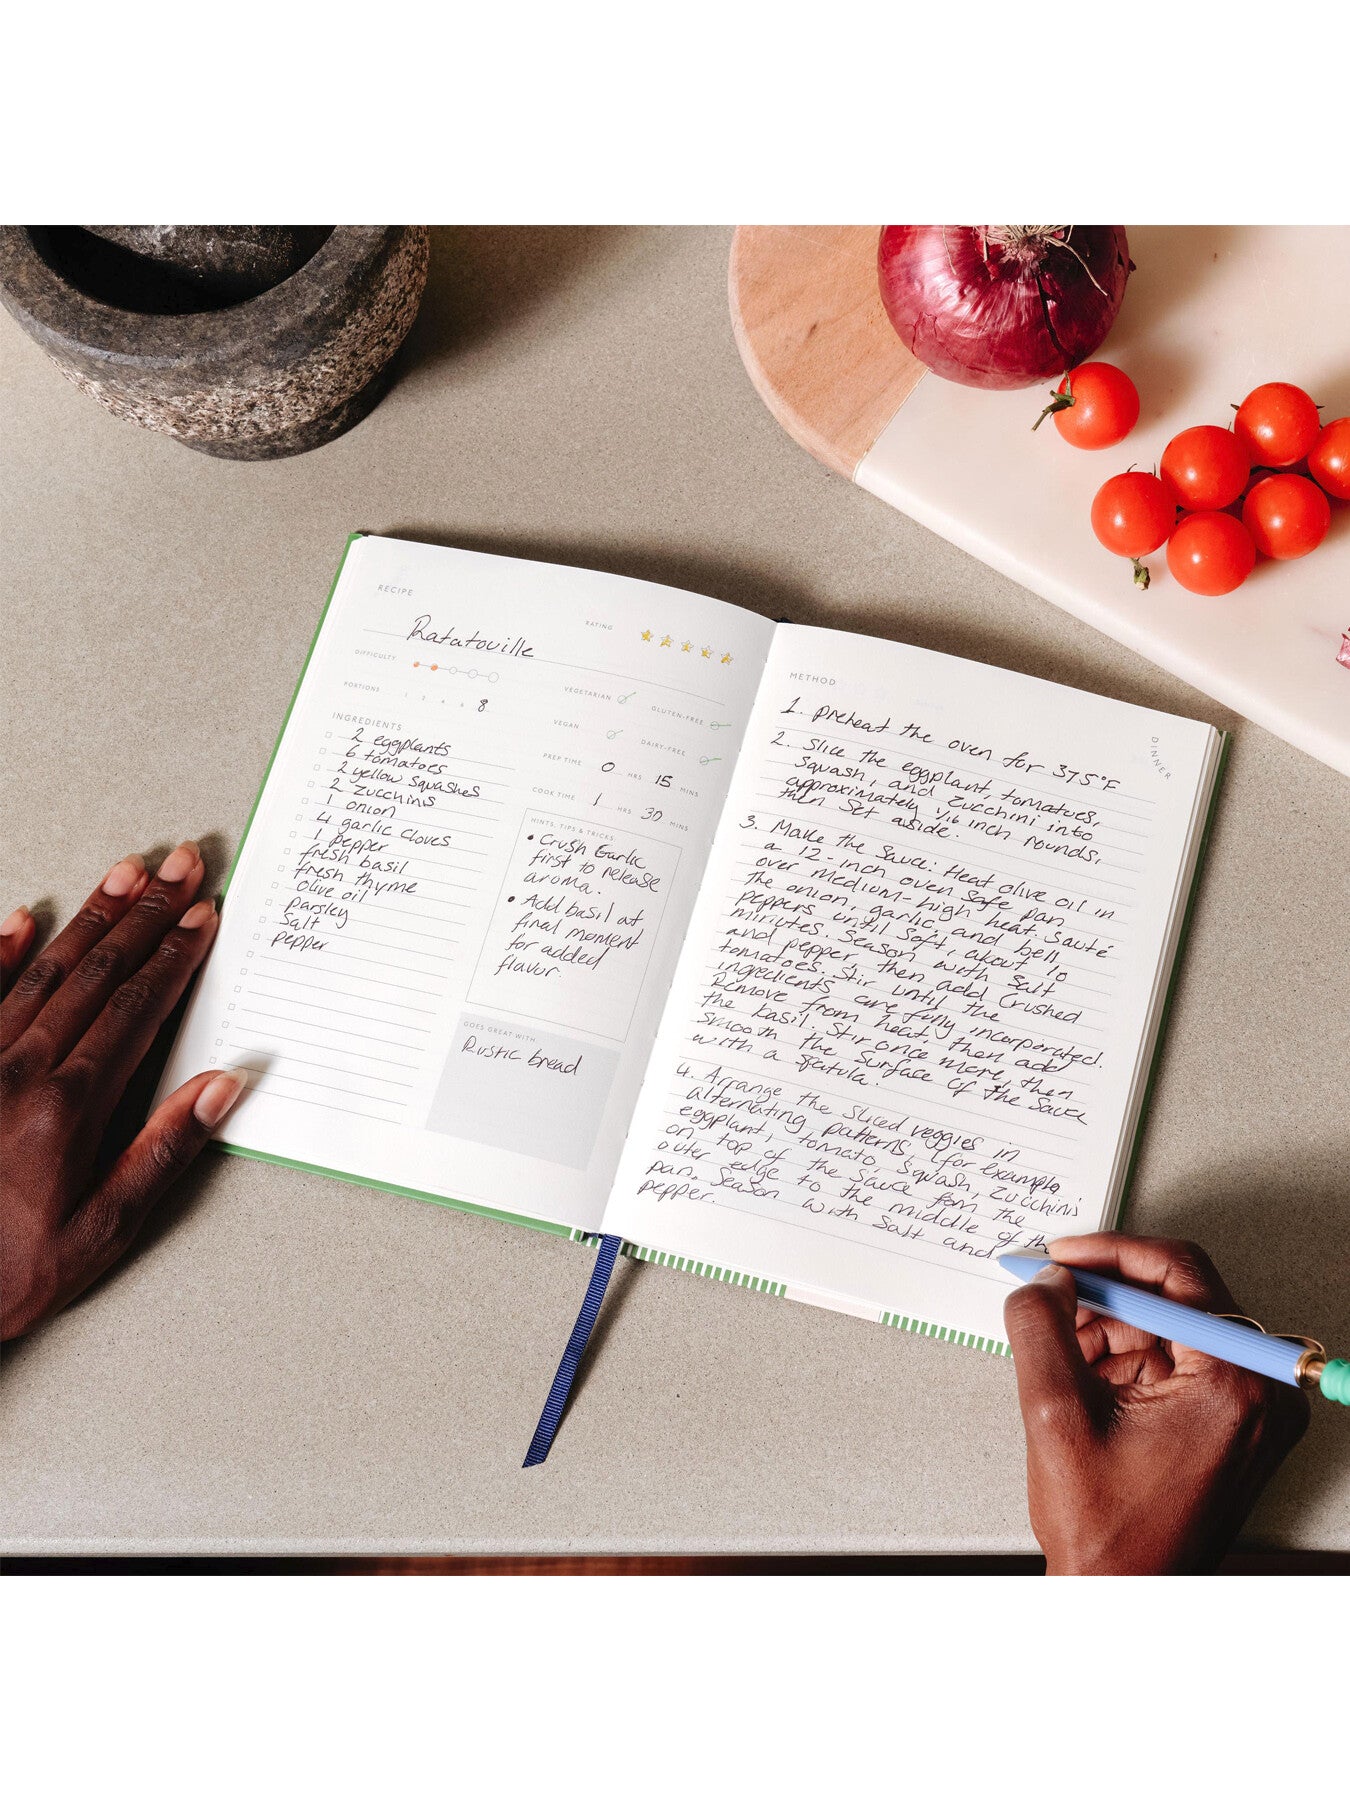 RECIPE
Ratatouille
RATING
DIFFICULTY
PORTIONS 1 2 4 6 8
VEGETARIAN
GLUTEN-FREE
VEGAN
DAIRY-FREE
PREP TIME 0 HRS 15 MINS
COOK TIME 1 HRS 30 MINS
INGREDIENTS
2 eggplants
6 tomatoes
2 yellow squashes
2 zucchinis
1 onion
4 garlic cloves
1 pepper
fresh basil
fresh thyme
olive oil
parsley
salt
pepper
HINTS, TIPS & TRICKS
• Crush Garlic
first to release
aroma.
• Add basil at
final moment
for added
flavor.
GOES GREAT WITH
Rustic bread
METHOD
DINNER
1. preheat the oven for 375°F
2. Slice the eggplant, tomatoes,
squash, and zucchini into
approximately 1/16 inch rounds,
then set aside.
3. Make the sauce: Heat olive oil in
a 12-inch oven safe pan
over medium-high heat. Sauté
the onion, garlic, and bell
peppers until soft, about 10
minutes. Season with salt
and pepper, then add crushed
tomatoes. Stir until the
ingredients are fully incorporated.
Remove from heat, then add
the basil. Stir once more, then
smooth the surface of the sauce
with a spatula.
4. Arrange the sliced veggies in
alternating patterns, (for example,
eggplant, tomato, squash, zucchini)
on top of the sauce from the
outer edge to the middle of the
pan. Season with salt and
pepper.